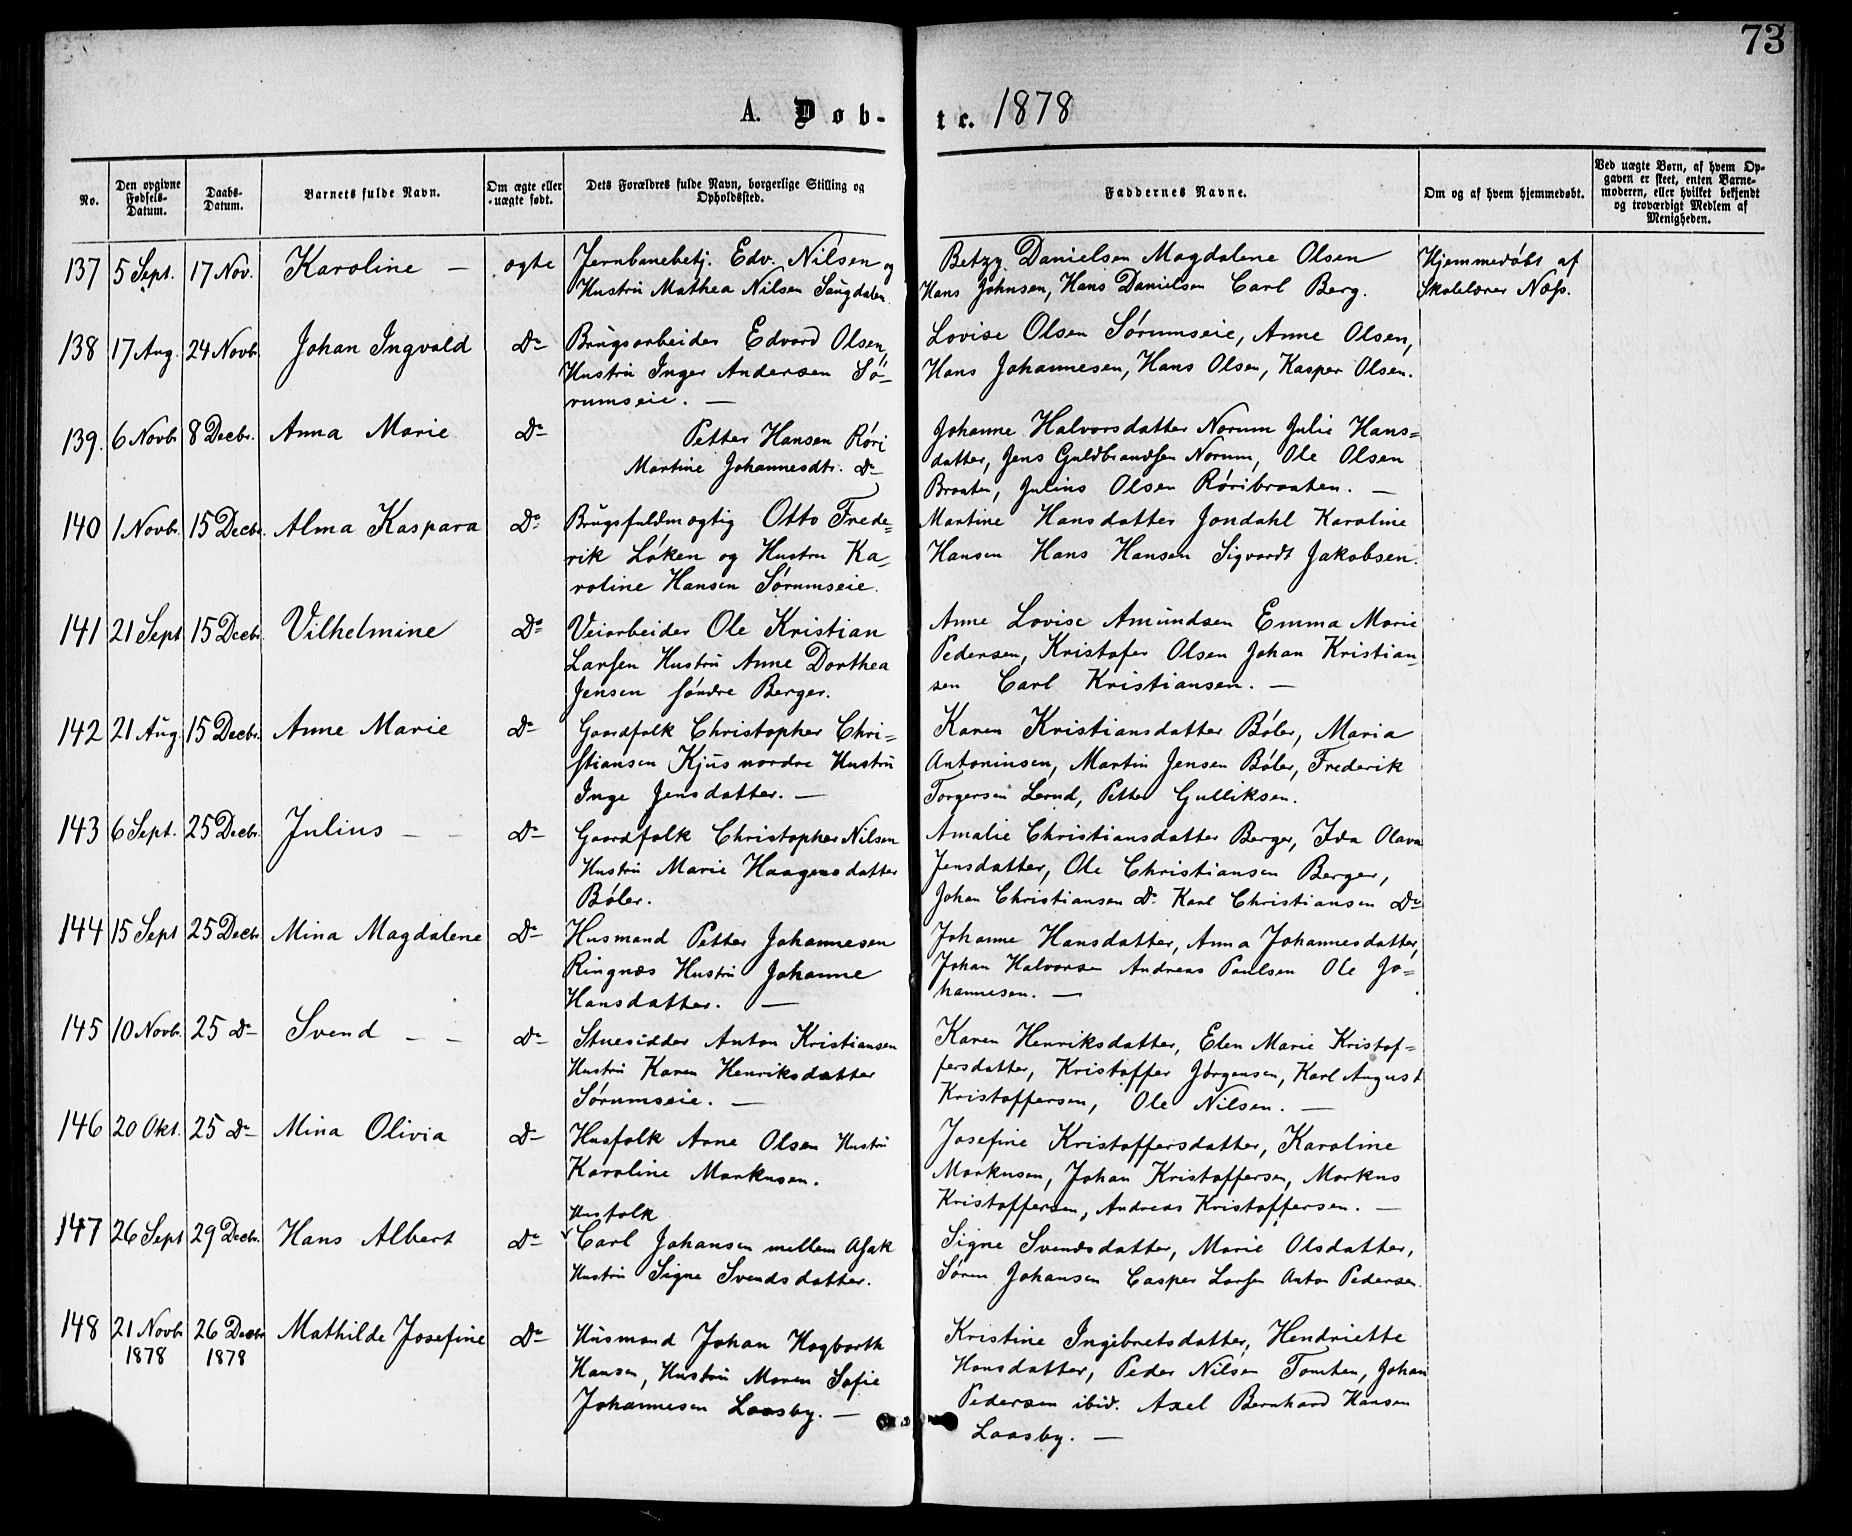 73
A. Døb-
te. 1878
No.
Den opgivne Fødsels-Datum.
Daabs-Datum.
Barnets fulde Navn.
Om ægte eller uægte født.
Dets Forældres fulde Navn, borgerlige Stilling og Opholdssted.
Faddernes Navne.
Om og af hvem hjemmedøbt.
Ved uægte Børn, af hvem Opgaven er skeet, enten Barnemoderen, eller hvilket bekjendt og troværdigt Medlem af Menigheden.
137 5 Sept. 17 Nov. Karoline — ægte
Jernbanebetj. Edv. Nilsen og
Hustru Mathea Nilsen
Betzy Danielsen Magdalene Olsen
Hans Johnsen, Hans Danielsen Carl Berg.
Hjemmedøbt af
Skolelærer Næss.
138 17 Aug. 24 Novb. Johan Ingvald Do
Brugsarbeider Edvard Olsen,
Hustru Inger Andersen Sø-
rumseie. —
Lovise Olsen Sørumseie, Anne Olsen,
Hans Johannesen, Hans Olsen, Kasper Olsen.
139. 6 Novb. 8 Decbr. Anna Marie Do
Petter Hansen Røri
Martine Johannesdtr. Do
Johanne Halvorsdatter Norum Julie Hans=
datter, Jens Guldbrandsen Norum, Ole Olsen
Braaten, Julius Olsen Røribraaten. —
140 1 Novb. 15 Decbr. Alma Kaspara Do
Brugsfuldmægtig Otto Frede=
rik Løken og Hustru Ka-
roline Hansen Sørumseie.
Martine Hansdatter Jondahl Karoline
Hansen Hans Hansen Sigvardt Jakobsen.
141 21 Sept 15 Decbr. Vilhelmine Do
Veiarbeider Ole Kristian
Larsen Hustru Anne Dorthea
Jensen søndre Berger.
Anne Lovise Amundsen Emma Marie
Pedersen, Kristofer Olsen Johan Kristian-
sen Carl Kristiansen. —
142 21 Aug. 15 Decbr. Anne Marie Do
Gaardfolk Christopher Chri-
stiansen Kjus nordre Hustru
Inge Jensdatter. —
Karen Kristiansdatter Bøler, Maria
Antoninsen, Martin Jensen Bøler, Frederik
Torgersen Lerud, Petter Gulliksen.
143 6 Sept. 25 Decbr. Julius — — Do
Gaardfolk Christopher Nilsen
Hustru Marie Haagensdatter
Bøler.
Amalie Christiansdatter Berger, Ida Olava
Jensdatter, Ole Christiansen Berger,
Johan Christiansen Do Karl Christiansen Do
144 15 Sept 25 Decbr Mina Magdalene Do
Husmand Petter Johannesen
Ringnæs Hustru Johanne
Hansdatter. —
Johanne Hansdatter, Anna Johannesdatter,
Johan Halvorsen Andreas Paulsen Ole Jo=
hannesen. —
145 10 Novb. 25 Do Svend — — Do
Stuesidder Anton Kristiansen
Hustru Karen Henriksdatter
Sørumseie. —
Karen Henriksdatter, Elen Marie Kristof=
fersdatter, Kristoffer Jørgensen, Karl August
Kristoffersen, Ole Nilsen. —
146 20 Okt. 25 Do Mina Olivia Do
Husfolk Arne Olsen Hustru
Karoline Markusen.
Josefine Kristoffersdatter, Karoline
Markusen, Johan Kristoffersen, Markus
Kristoffersen, Andreas Kristoffersen. —
147 26 Sept 29 Decbr. Hans Albert Do
Husfolk
Carl Johansen mellem Asak
Hustru Signe Svendsdatter.
Signe Svendsdatter, Marie Olsdatter,
Søren Johansen Casper Larsen Anton Pedersen.
148 21 Novb 1878 26 Decbr 1878 Mathilde Josefine Do
Husmand Johan Hagbarth
Hansen, Hustru Maren Sofie
Johannesen Laasby. —
Kristine Ingebretsdatter, Hendriette
Hansdatter, Peder Nilsen Tomten, Johan
Pedersen ibid. Axel Bernhard Hansen
Laasby. —